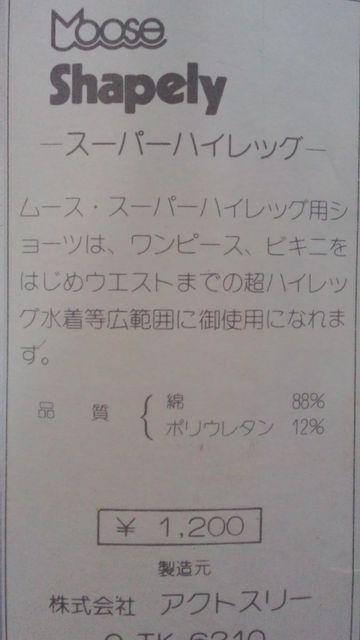 Moose
Shapely
—スーパーハイレッグ—
ムース・スーパーハイレッグ用シ
ョーツは、ワンピース、ビキニを
はじめウエストまでの超ハイレッ
グ水着等広範囲に御使用になれま
す。
品 質 { 綿 88%
ポリウレタン 12%
¥ 1,200
製造元
株式会社 アクトスリー